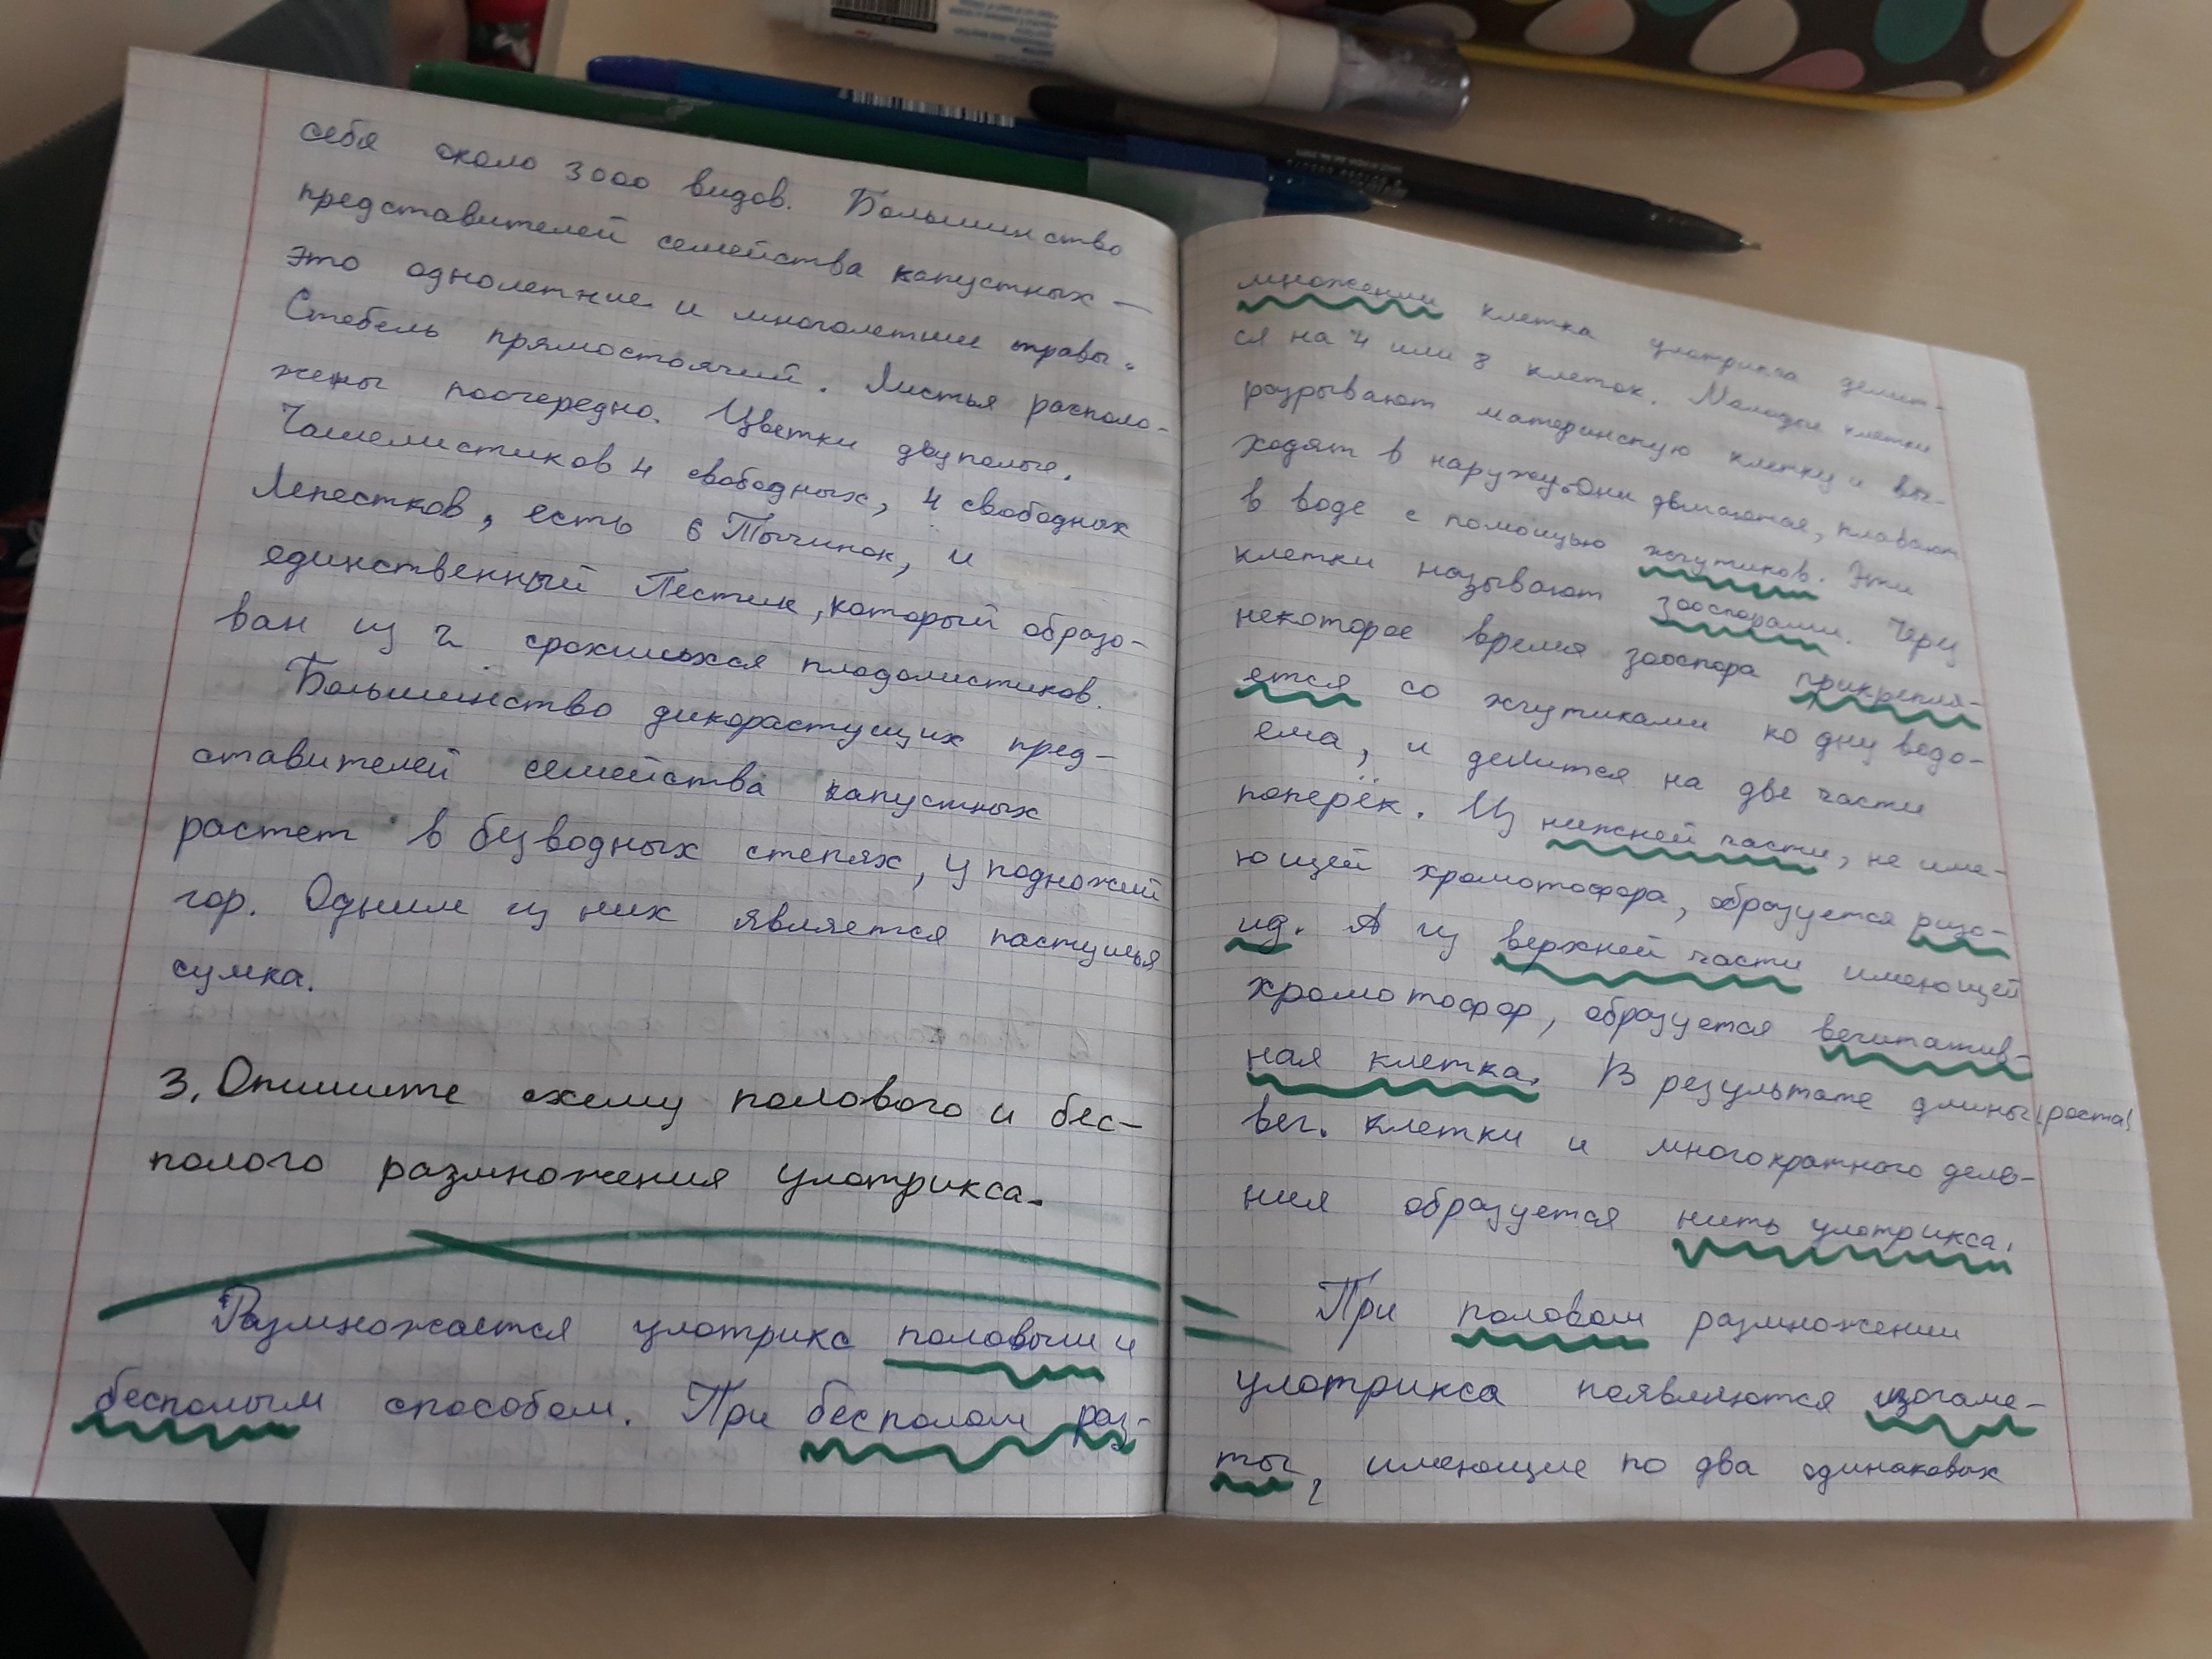 себя около 3000 видов. Большинство
представителей семейства капустных —
это однолетние и многолетние травы.
Стебель прямостоячий. Листья располо-
жены поочередно. Цветки двуполые.
Чашелистиков 4 свободных, 4 свободных
Лепестков, есть 6 Тычинок, и
единственный Пестик, который образо-
ван из 2 сросшихся плодолистиков.
Большинство дикорастущих пред-
ставителей семейства капустных
растет в безводных степях, у подножий
гор. Одним из них является пастушья
сумка.
3. Опишите схему полового и бес-
полого размножения улотрикса.
Размножается улотрикс половым и
бесполым способом. При бесполом раз-
множении клетка улотрикса делит-
ся на 4 или 8 клеток. Молодые клетки
разрывают материнскую клетку и вы-
ходят в наружу. Они двигаются, плавают
в воде с помощью жгутиков. Эти
клетки называют зооспорами. Через
некоторое время зооспора прикрепля-
ется со жгутиками ко дну водо-
ема, и делится на две части
поперёк. Из нижней части, не име-
ющей хромотофора, образуется ризо-
ид. А из верхней части имеющей
хромотофор, образуется вегитатив-
ная клетка. В результате длины (роста)
вег. клетки и многократного деле-
ния образуется нить улотрикса.
При половом размножении
улотрикса появляются изогаме-
ты, имеющие по два одинаковых